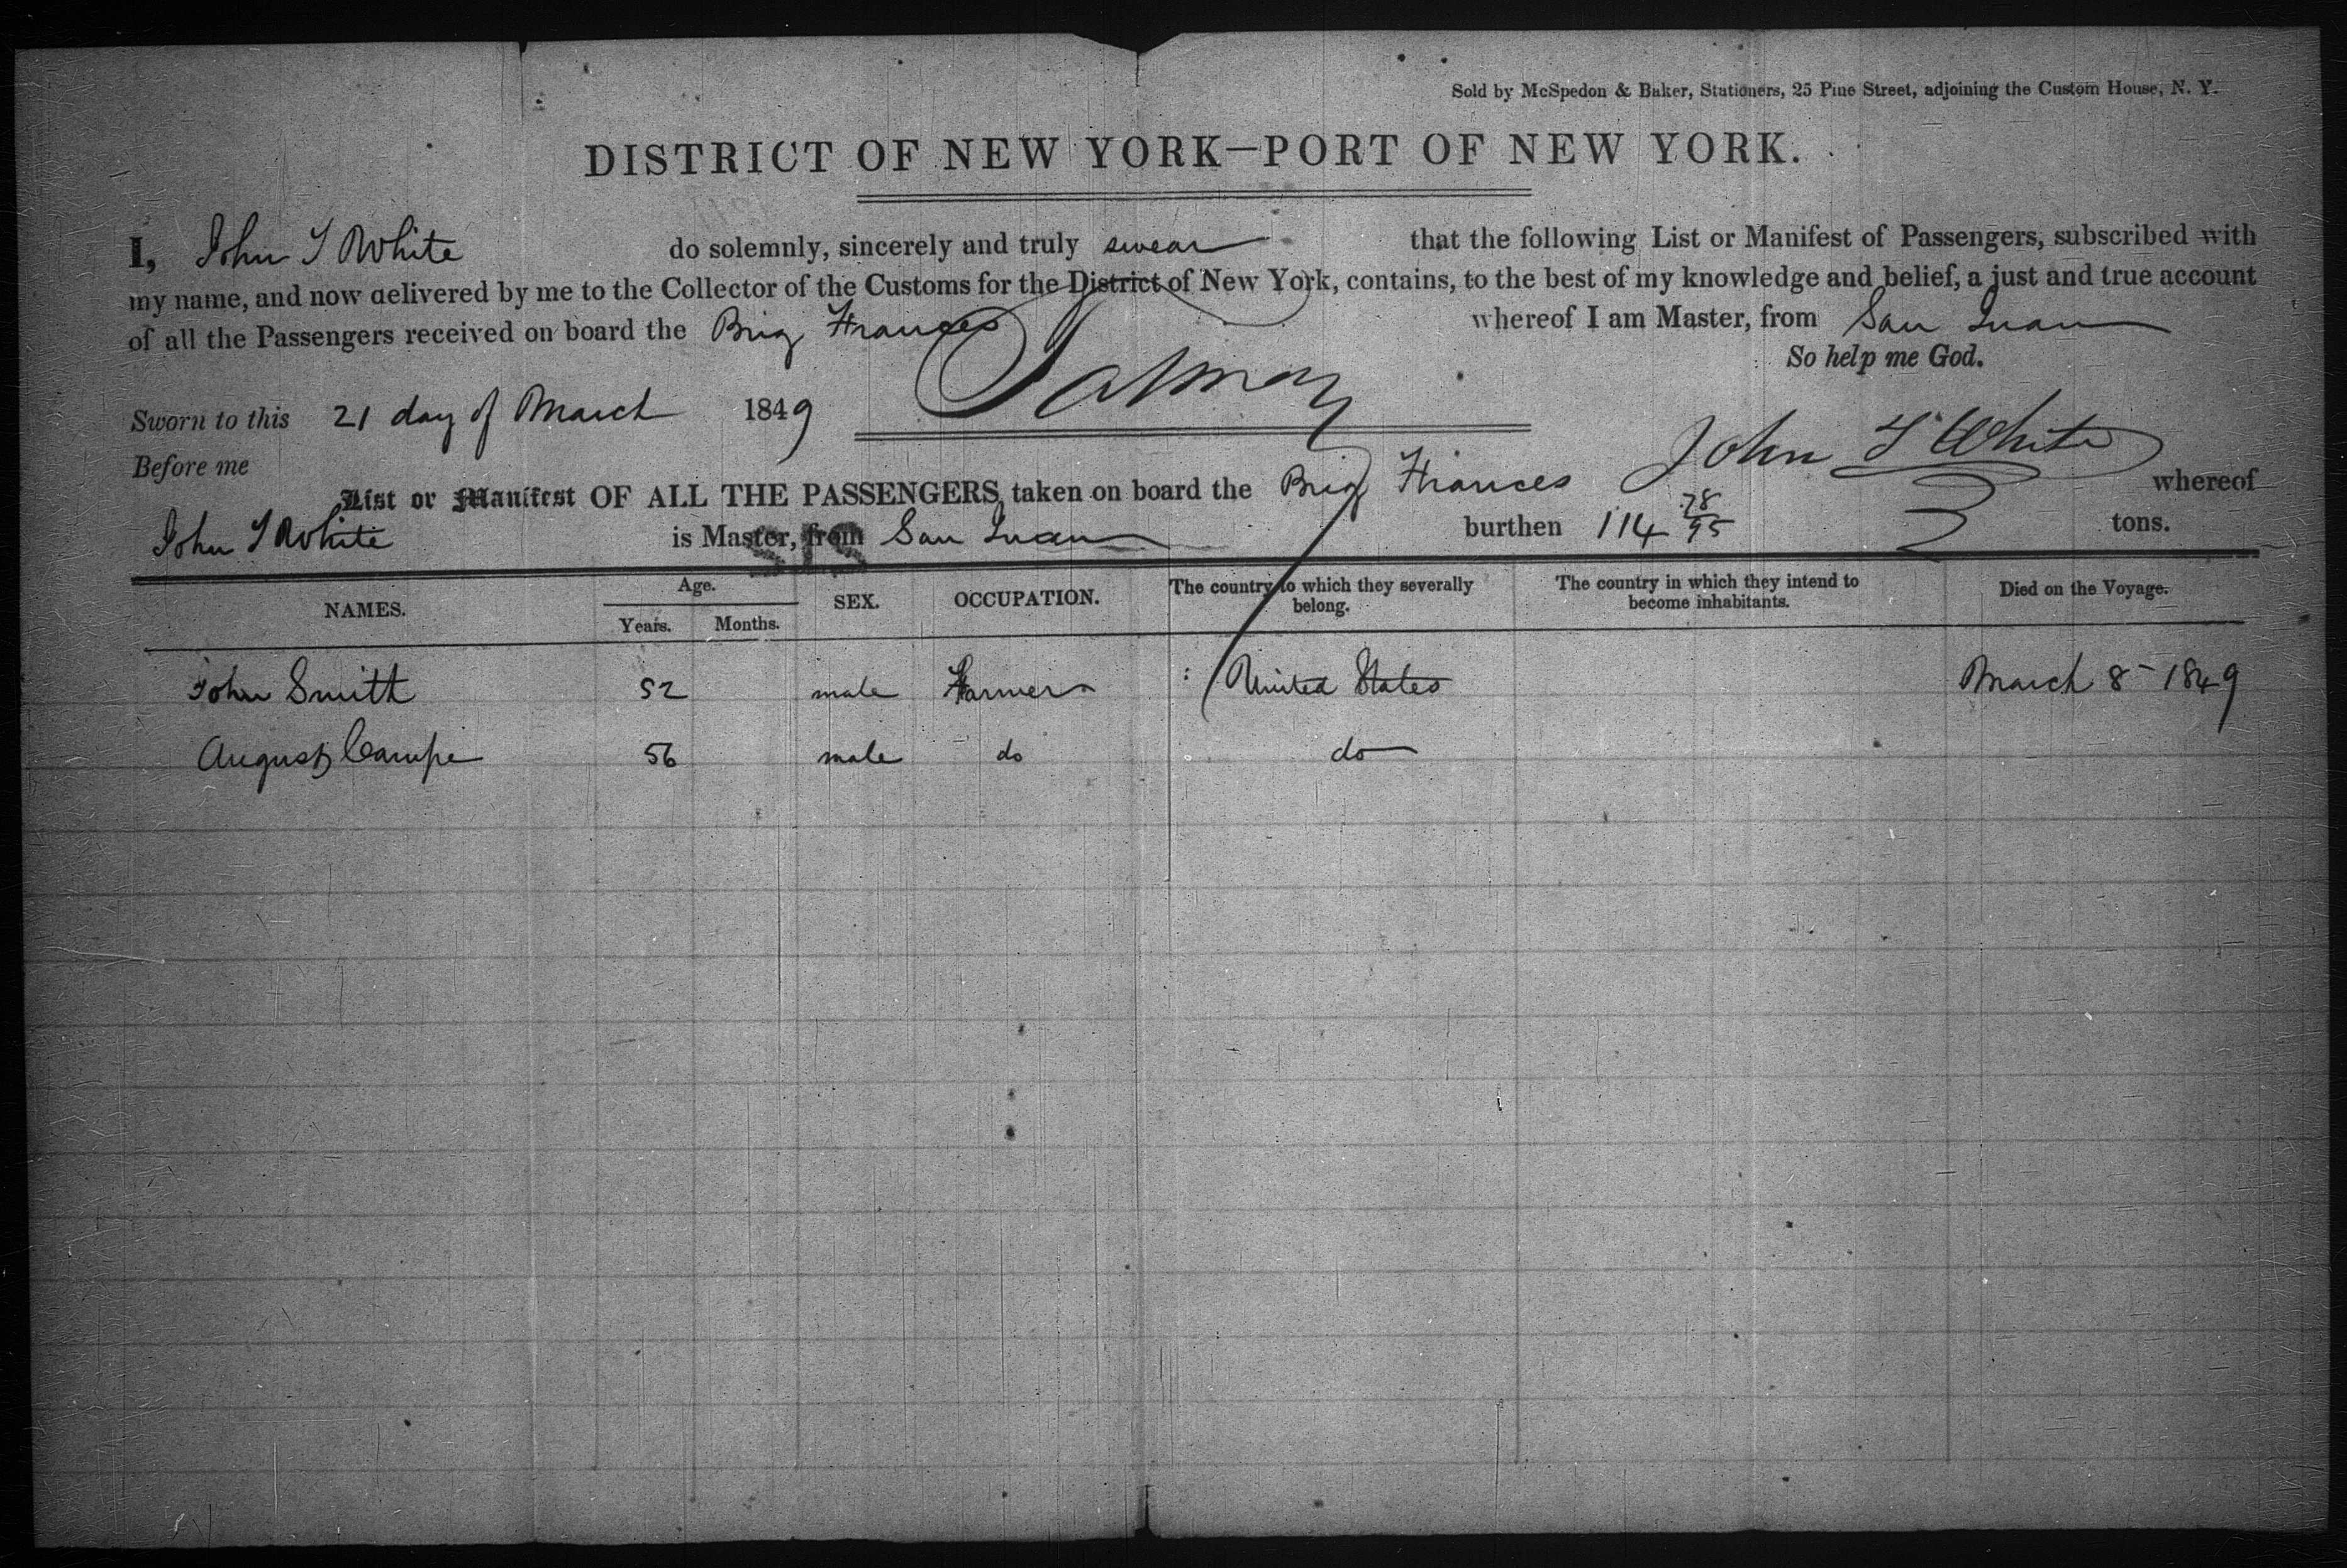 Sold by McSpedon & Baker, Stationers, 25 Pine Street, adjoining the Custom House, N. Y.
DISTRICT OF NEW YORK—PORT OF NEW YORK.
I, John T White do solemnly, sincerely and truly swear that the following List or Manifest of Passengers, subscribed with
my name, and now delivered by me to the Collector of the Customs for the District of New York, contains, to the best of my knowledge and belief, a just and true account
of all the Passengers received on board the Brig Frances whereof I am Master, from San Juan
So help me God.
Sworn to this 21 day of March 1849
John T White
Before me
List or Manifest OF ALL THE PASSENGERS taken on board the Brig Frances whereof
John T White is Master, from San Juan burthen 114 78/95 tons.
NAMES. Age. Years. Months. SEX. OCCUPATION. The country to which they severally belong. The country in which they intend to become inhabitants. Died on the Voyage.
John Smith 52 male Farmer United States March 8 - 1849
August Campe 56 male do do